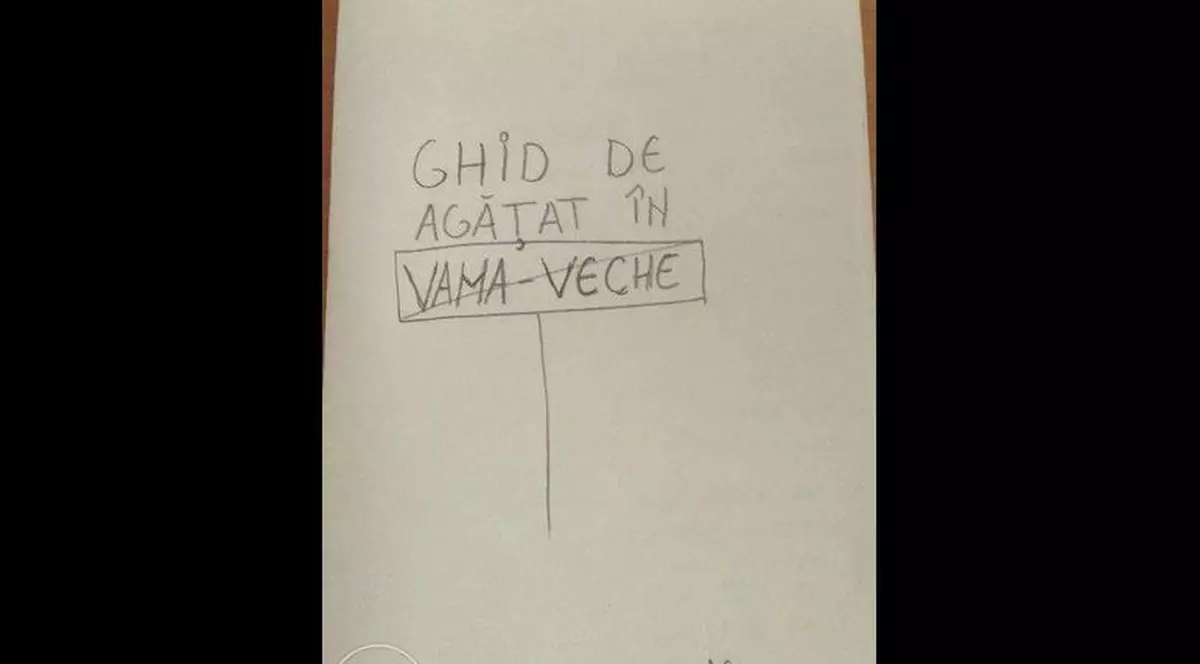 GHID DE
AGĂȚAT ÎN
VAMA-VECHE